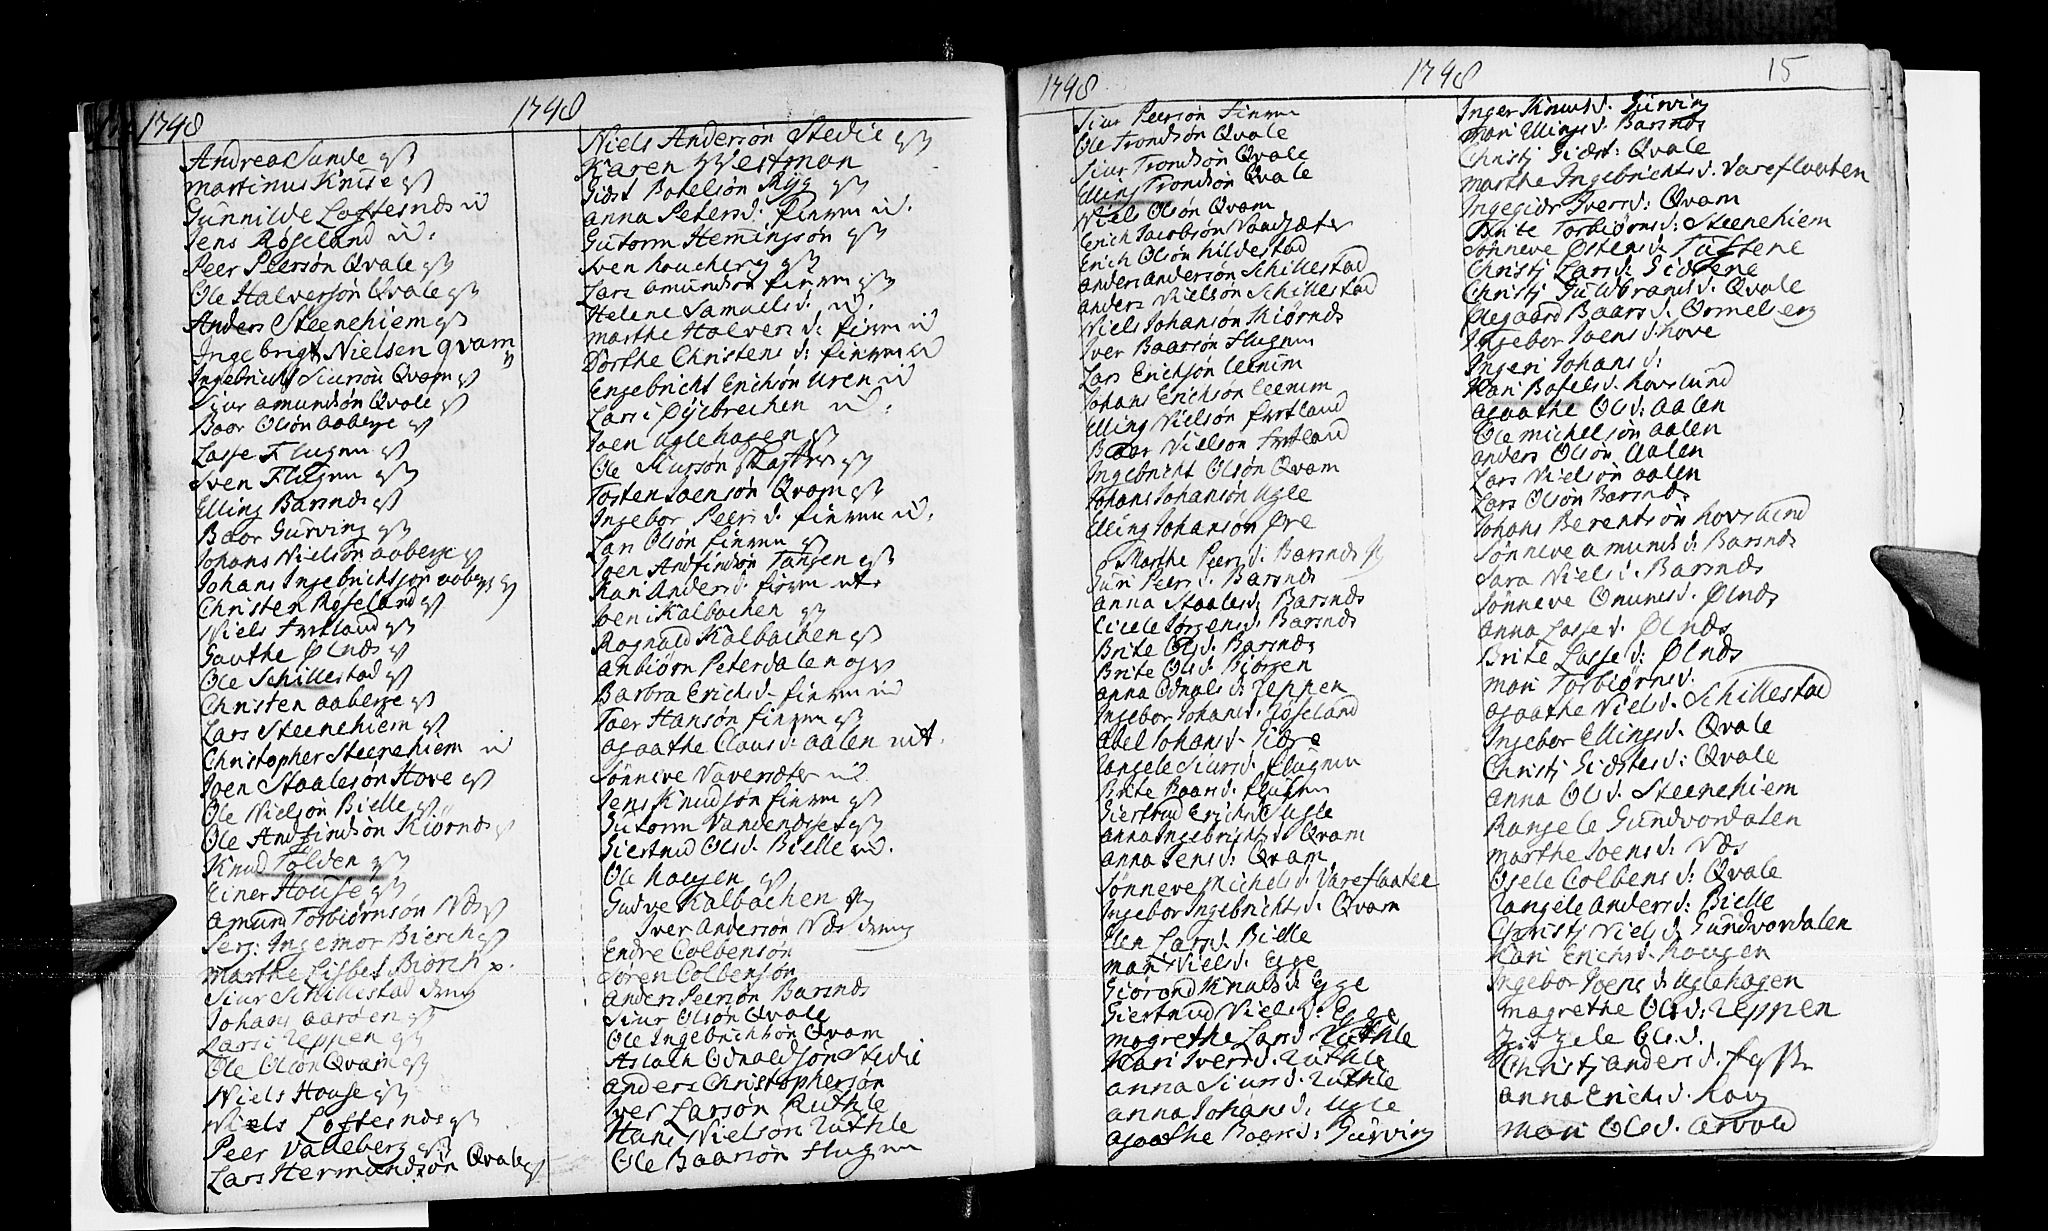 1748
Andreas Sunde
Martinus Knise
Gunnilde Loftesnæs
Jens Røseland
Peer Peersøn Qvale
Ole Halversøn Qvale
Anders Steenehiem
Ingebrigt Nielsen Qvam
Ingebricht Siursøn Qvam
Siur Amundsøn Qvale
Baar Olsøn Aaberge
Lasse Flugem
Sven Flugem
Elling Barsnæs
Baar Gurving
Johans Nielsøn Aaberge
Johans Ingebrichtsøn Aaberge
Christen Røseland
Niels
Gauthe Ølnæs
Ole Schillestad
Christen Aaberge
Lars Steenehiem
Christopher Steenehiem
Joen Staalesøn Hove
Ole Nielsøn Bielle
Ole Andfindsøn Kiørnæs
Knud Tolden
Einer House
Amund Torbiørnsøn Næs
Serj: Ingemor Bierch
Marthe Lisbet Biørch
Siur Schillestad dreng
Johans Aarsten
Lars i Reppen
Ole Olsøn Qvam
Niels House
Niels Loftesnæs
Peer Valleberg
Lars Hermandsøn Qvale
1748
Niels Andersøn Stedie
Karen Westman
Gidst Botelsøn Ryg
Anna Petersd: Finnen
Gutorm Hemingsøn
Sven
Lars Amundsøn Finnen
Helene Samuelsd:
Marthe Halversd: Finnen
Dorthe Christensd: Finnen
Engebricht Erichsøn Uren
Lars i Øygbrechen
Joen Uglehagen
Ole Siursøn
Torsten Joensøn Qvam
Ingebor Peersd: Finnen
Lars Olsøn Finnen
Joen Andfindsøn Tangen
Kari Andersd: Finnen
Joen i Kalbachen
Ragnild Kalbachen
Anbiørn Peterdalen
Barbra Erichsd: Finnen
Toer Hansøn Finnen
Agaathe Clausd: Aalen
Sønneve Naversæter
Jens Knudsøn Finnen
Gutorm
Giertrud Olsd: Bielle
Ole Haugen
Gudve Kalbachen
Iver Andersøn Næs dreng
Endre Colbensøn
Søren Colbensøn
Anders Peersøn Barsnæs
Siur Olsøn Qvale
Ole Ingebrichtsøn Qvam
Aslach Odnaldsøn Stedie
Anders Christophersøn
Iver Larsøn Ruthle
Hans Nielsøn Ruthle
Ole Baarsøn Flugem
1748
Siur Peersøn Finnen
Ole Trondsøn Qvale
Siur Trondsøn Qvale
Elling Trondsøn Qvale
Niels Olsøn Qvam
Erich Jacobsøn Naversæter
Erich Olsøn Hildestad
Anders Andersøn Schillestad
Anders Nielsøn Schillestad
Niels Johansøn Kiørnæs
Iver Baarsøn Flugem
Lars Erichsøn Leenum
Johans Erichsøn Leenum
Elling Nielsøn
Baar Nielsøn
Ingebricht Olsøn Qvam
Johans Johansøn Ugle
Elling Johansøn Øre
Marthe Peersd: Barsnæs
Guri Peersd: Barsnæs
Anna Staalesd: Barsnæs
Cicele Jørgensd: Barsnæs
Brite Olsd: Barsnæs
Brite Olsd: Biørgen
Anna Odnalsd: Reppen
Ingebor Johansd: Røseland
Abel Johansd:
Rangele Siursd: Flugem
Brite Baarsd: Flugem
Giertrud Erichsd: Ugle
Anna Ingebrichtsd: Qvam
Anna Jensd: Qvam
Sønneve Michelsd: Vareflaaten
Ingebor Ingebrichtsd: Qvam
Elen Larsd: Bielle
Mari Nielsd: Egge
Giørond Knutsd: Egge
Giertrud Nielsd: Egge
Magrethe Larsd: Ruthle
Kari Iversd: Ruthle
Anna Siursd: Ruthle
Anna Johansd: Ugle
Agaathe Baarsd: Gurving
1748
15
Inger Knutsd: Gurving
Mari Ellingsd: Barsnæs
Christj Gidst: Qvale
Marthe Ingebrichtsd: Vareflaaten
Ingegier Iversd: Qvam
Brite Torbiørnsd: Steenehiem
Sønneve Østensd: Tuftene
Christj Larsd:
Christj Guldbrandsd: Qvale
Aagaard Baarsd: Ormelseng
Ingebor Joensd: Hove
Ingeri Johansd:
Kari Botelsd: Hovslund
Agaathe Olsd: Aalen
Ole Michelsøn Aalen
Anders Olsøn Aalen
Lars Nielsøn Aalen
Lars Olsøn Barsnæs
Johans Berentsøn Hovslund
Sønneve Amunsd: Barsnæs
Sara Nielsd: Barsnæs
Sønneve Omunsd: Ølnæs
Anna Lassed: Ølnæs
Brite Lassed: Ølnæs
Mari Torbiørnsd:
Agaathe Nielsd: Schillestad
Ingebor Ellingsd: Qvale
Christj Gidstesd: Qvale
Anna Olsd: Steenehiem
Rangele Gundvordalen
Marthe Joensd: Næs
Osele Colbensd: Qvale
Rangele Andersd: Bielle
Christj Nielsd: Gundvordalen
Kari Erichsd: Hougen
Ingebor Joensd: Uglehagen
Magrethe Olsd: Reppen
Zidzele Olsd:
Christj Andersd:
Anna Erichsd: Haug
Mari Olsd: